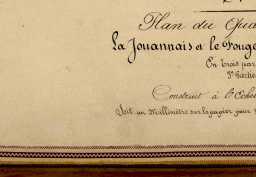 Plan du Qua
La Jouannais et le Rouge
En trois par
Construit à l'Eche
Soit un Millimètre sur le papier pour